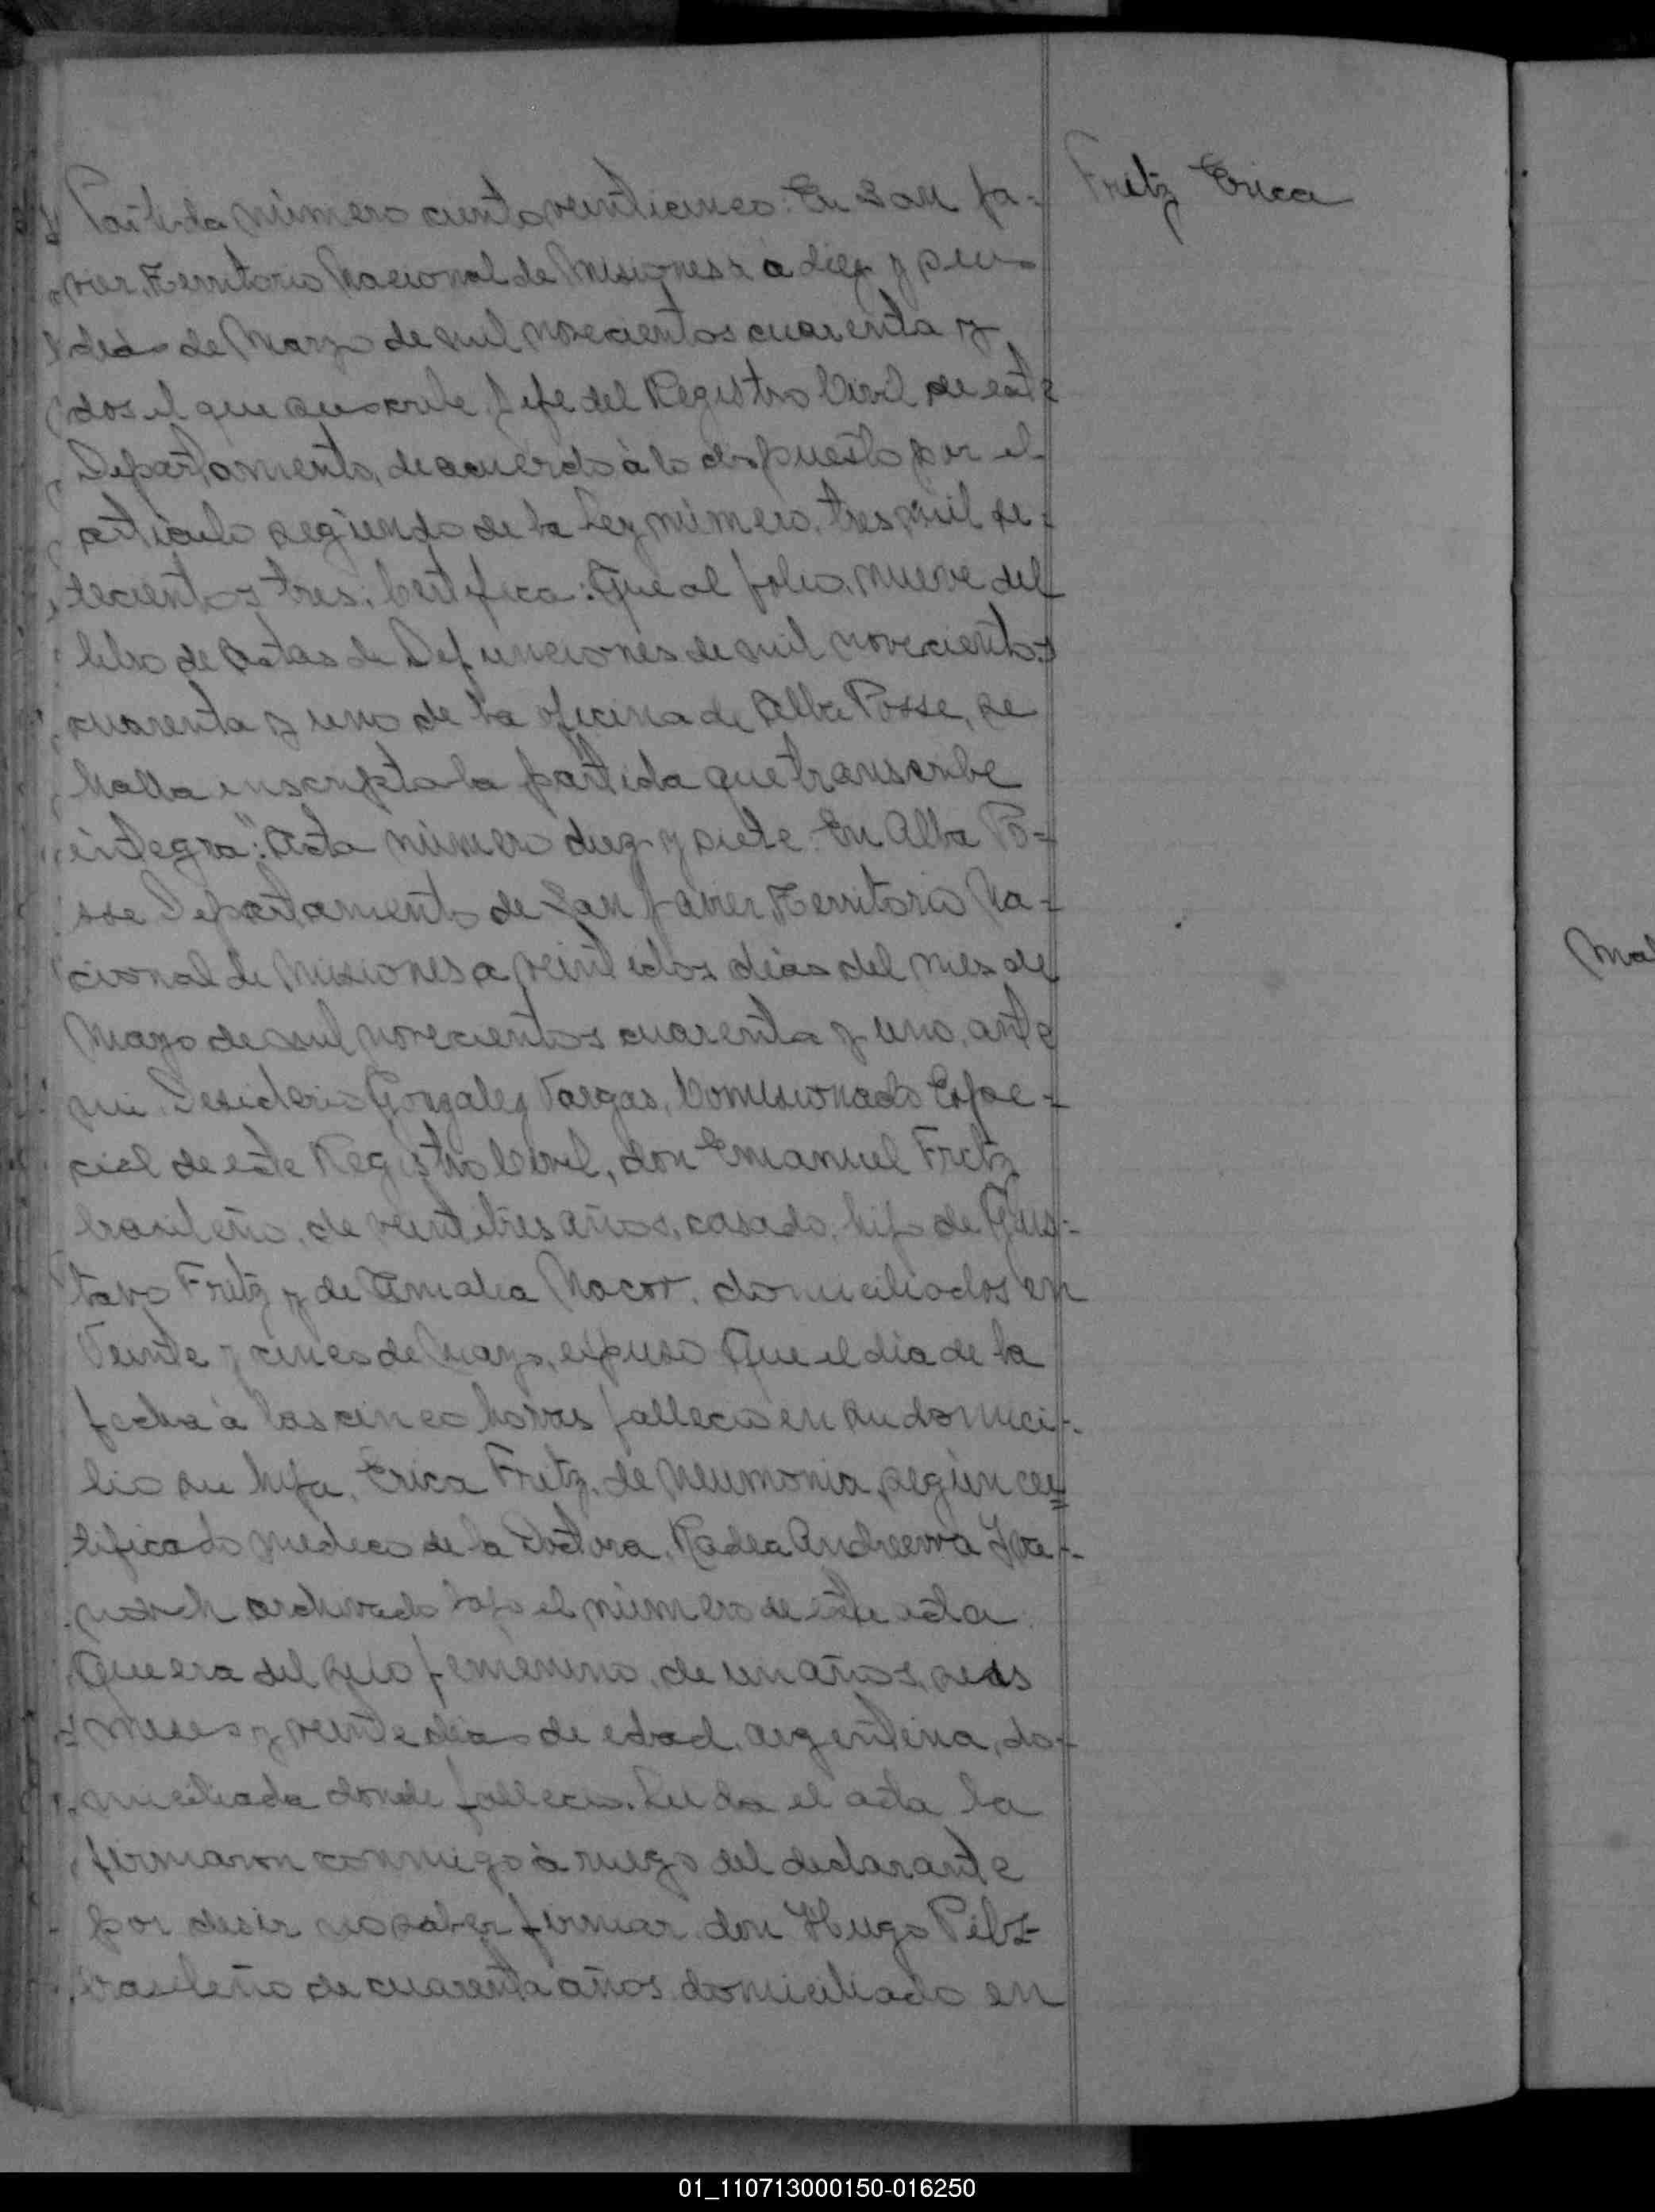 Fritz Erica
Partida número ciento veinticinco: En San Ja-
vier, Territorio Nacional de Misiones, a diez y seis
dias de Marzo de mil novecientos cuarenta y
dos el que suscribe Jefe del Registro Civil de este
Departamento, de acuerdo à lo dispuesto por el
artículo segundo de la Ley número, tres mil se-
tecientos tres; Certifica: Que al folio, nueve del
libro de Actas de Defunciones de mil novecientos
cuarenta y uno de la oficina de Alba Posse, se
halla inscripta la partida que transcribe
integra": Acta número diez y siete. En Alba Po-
sse Departamento de San Javier, Territorio Na-
cional de Misiones a veintidos dias del mes de
Mayo de mil novecientos cuarenta y uno, ante
mi Desiderio Gonzalez Vargas, Comisionado Espe-
cial de este Registro Civil, don Emanuel Fritz
brasileño, de veintitres años, casado, hijo de Gus-
tavo Fritz y de Amalia domiciliados en
Veinte y cinco de Mayo, expuso Que el dia de la
fecha à las cinco horas fallecio en su domici-
lio su hija, Erica Fritz, de Neumonia, según cer
tificado medico de la Doctora, Andreewa
archivado bajo el número de este acta.
Que era del sexo femenino, de un años, seis
meses y veinte dias de edad, argentina, do-
miciliada donde fallecio. Leida el acta la
firmaron conmigo à ruego del declarante
por desir no saber firmar don Hugo
brasileño de cuarenta años domiciliado en
Mal
01_110713000150-016250